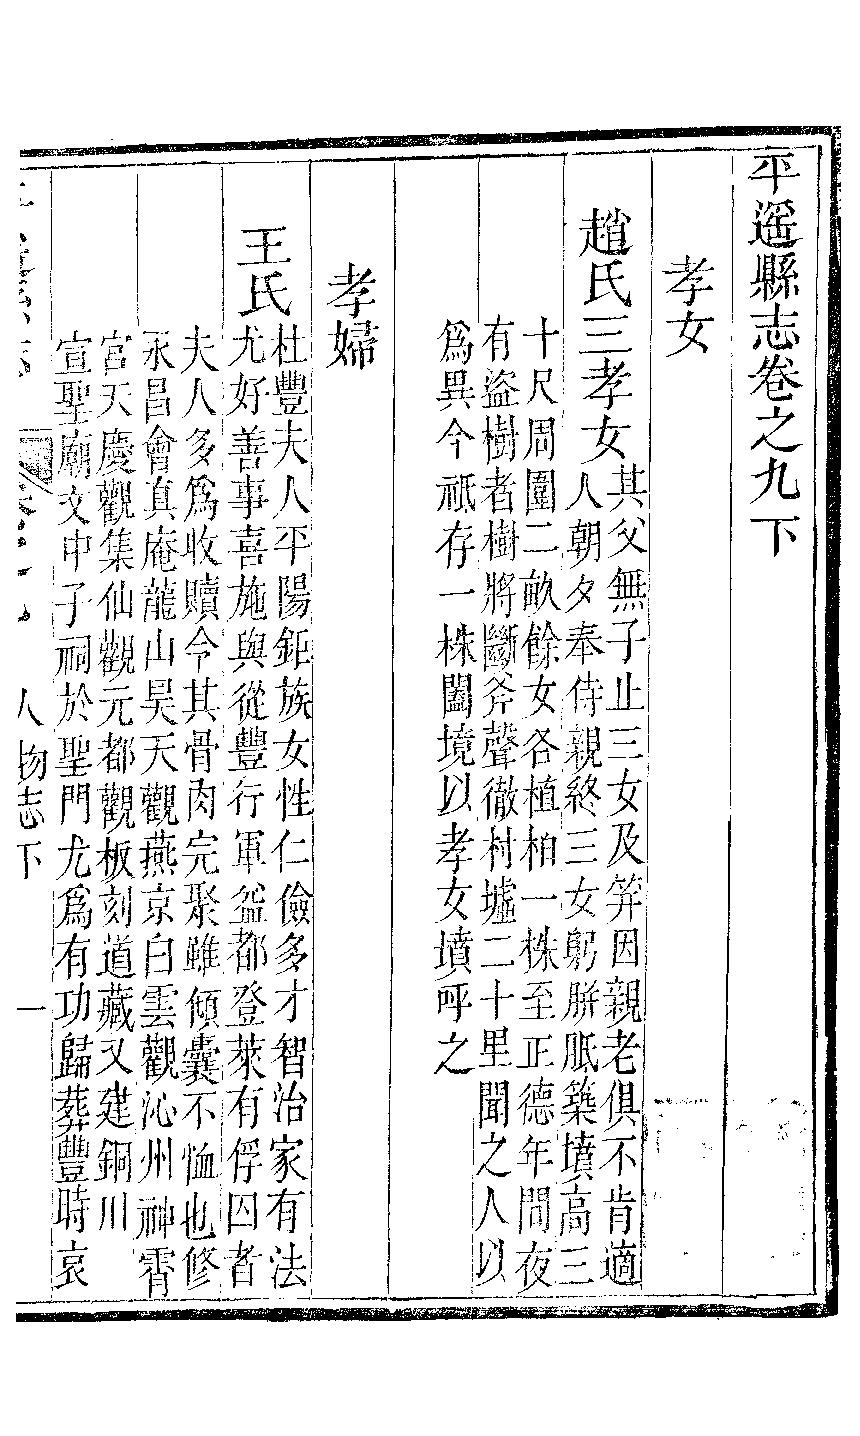 平遥縣志卷之九下
孝女
趙氏三孝女其父無子止三女及笄因親老俱不肯適
人朝夕奉侍親終三女躬胼胝築墳高三
十尺周圍二畝餘女各植柏一株至正德年間夜
有盜樹者樹將斷斧聲徹村墟二十里聞之人以
爲異今祇存一株闔境以孝女墳呼之
孝婦
王氏杜豐夫人平陽鉅族女性仁儉多才智治家有法
尤好善事喜施與從豐行軍益都登萊有俘囚者
夫人多爲收贖令其骨肉完聚雖傾囊不恤也修
永昌會真庵龍山昊天觀燕京白雲觀沁州神霄
宮天慶觀集仙觀元都觀板刻道藏又建銅川
宣聖廟文中子祠於聖門尤爲有功歸葬豐時哀
人物志下 一